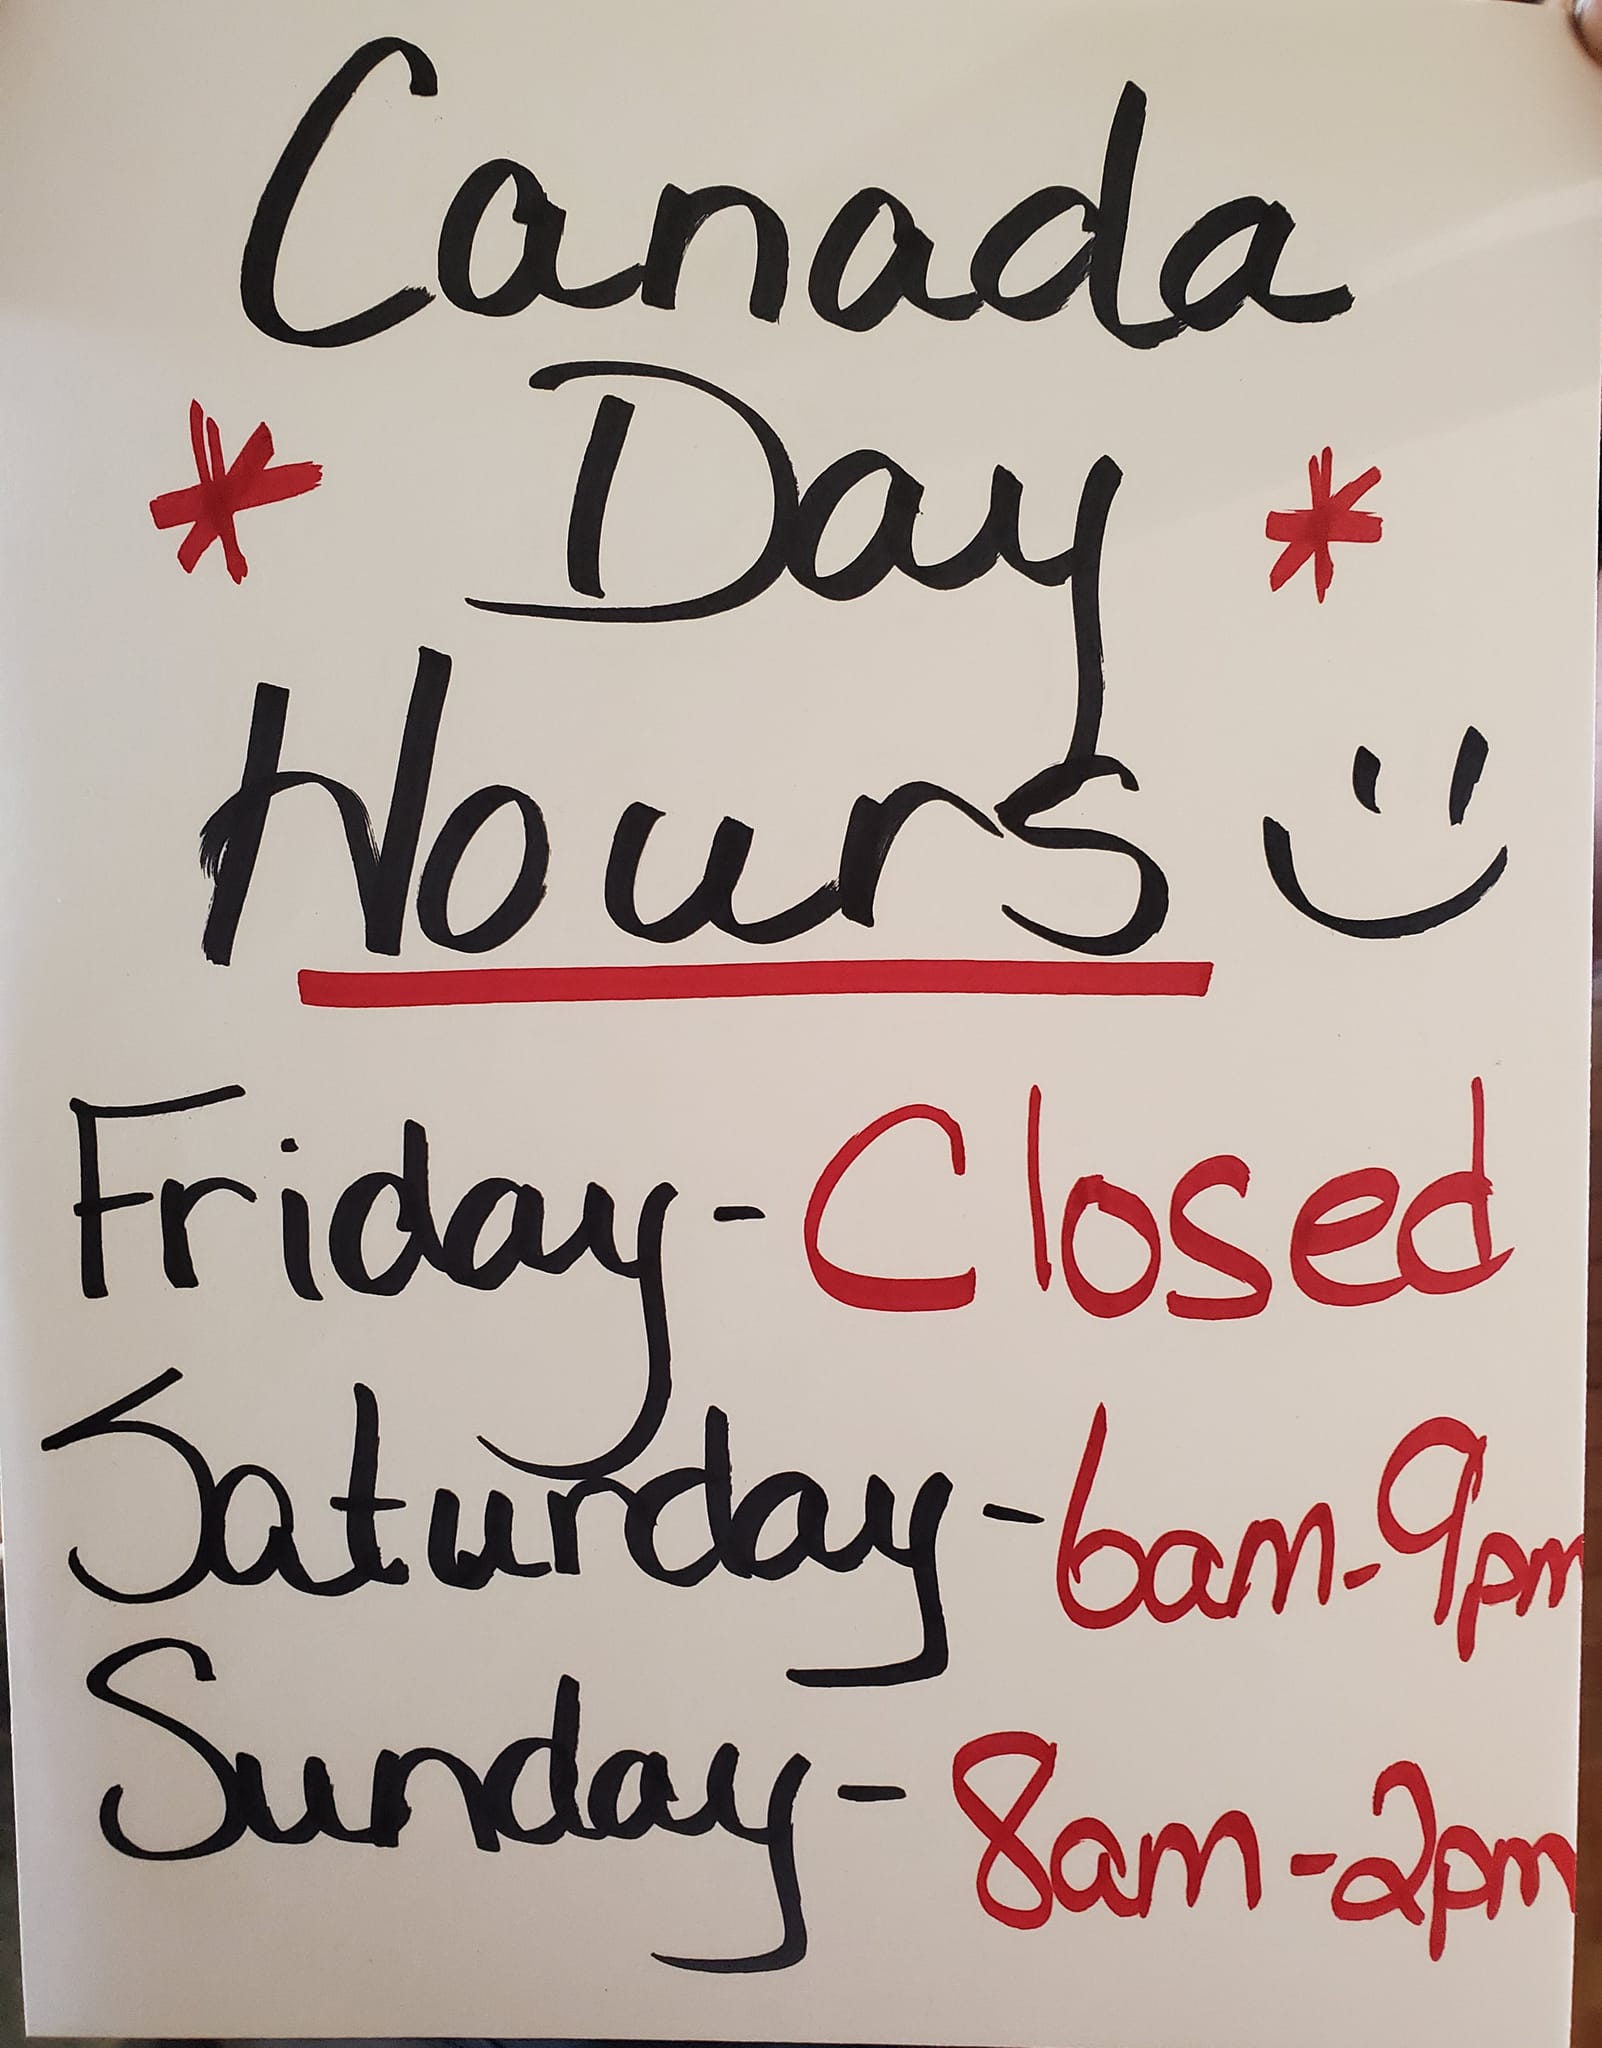 Canada
* Day *
Hours :)
Friday - Closed
Saturday - 6am - 9pm
Sunday - 8am - 2pm